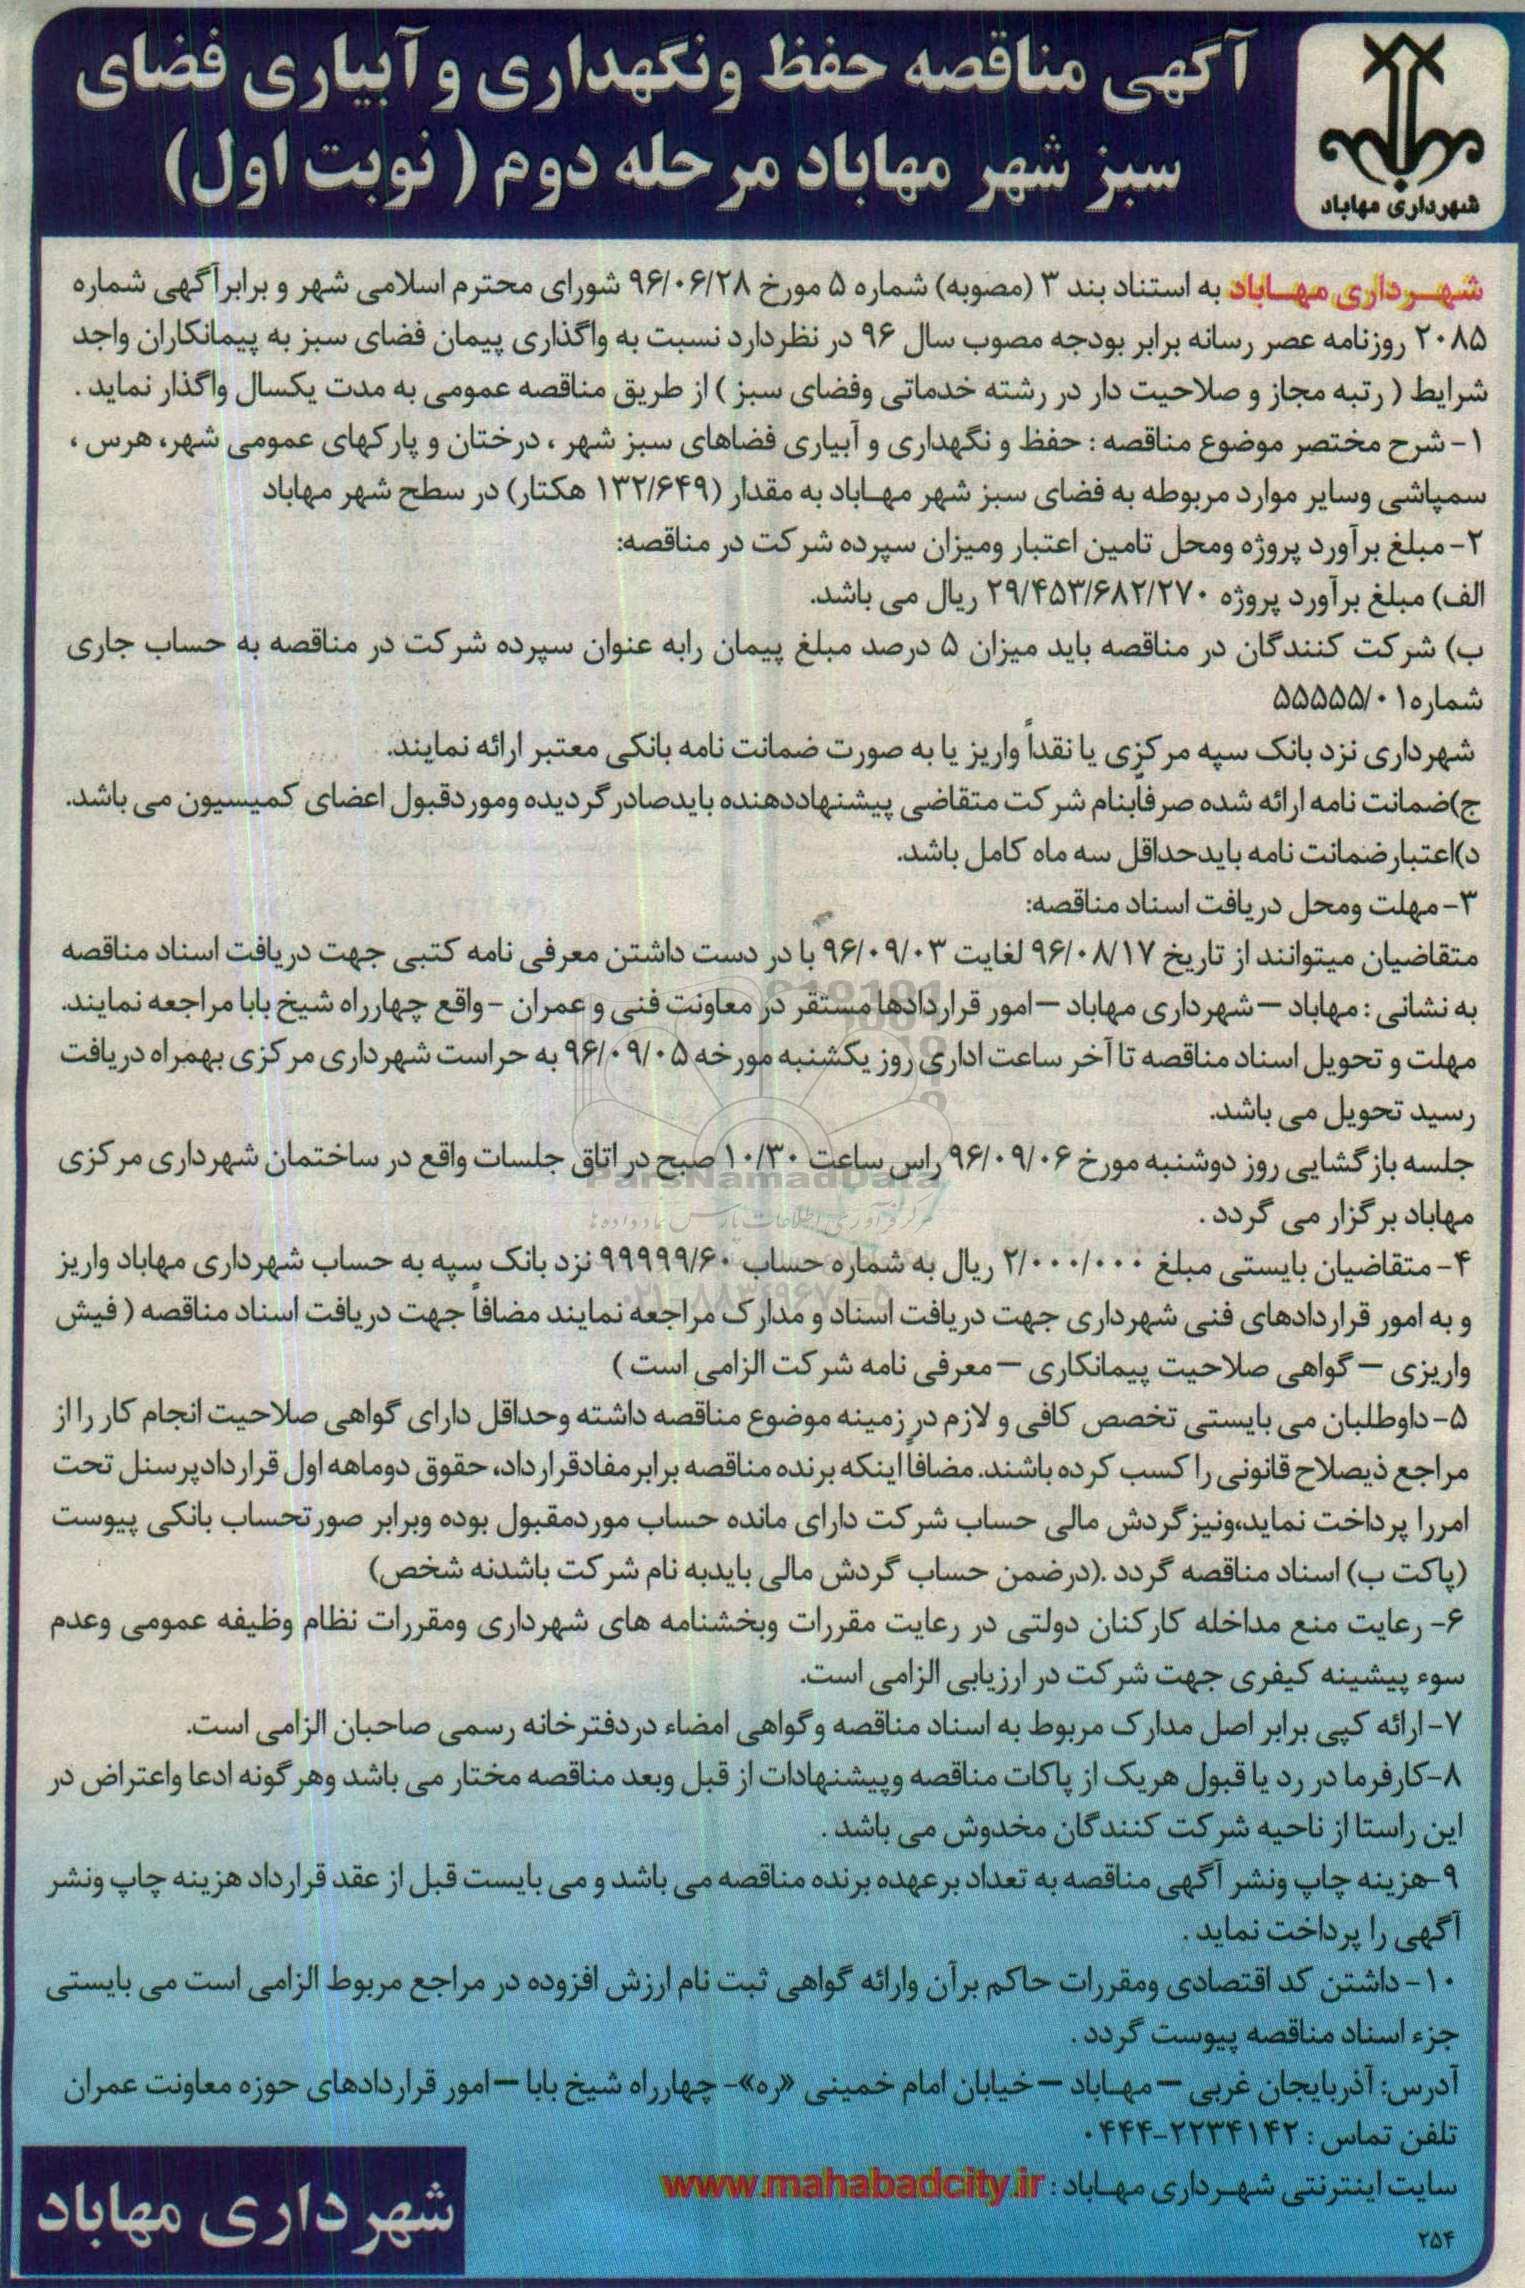 آگهی مناقصه حفظ ونگهداری و آبیاری فضای
سبز شهر مهاباد مرحله دوم ( نوبت اول)
شهرداری مهاباد
شهرداری مهاباد به استناد بند ۳ (مصوبه) شماره ۵ مورخ ۹۶/۰۶/۲۸ شورای محترم اسلامی شهر و برابرآگهی شماره
۲۰۸۵ روزنامه عصر رسانه برابر بودجه مصوب سال ۹۶ در نظردارد نسبت به واگذاری پیمان فضای سبز به پیمانکاران واجد
شرایط ( رتبه مجاز و صلاحیت دار در رشته خدماتی وفضای سبز ) از طریق مناقصه عمومی به مدت یکسال واگذار نماید .
۱- شرح مختصر موضوع مناقصه : حفظ و نگهداری و آبیاری فضاهای سبز شهر ، درختان و پارکهای عمومی شهر، هرس ،
سمپاشی وسایر موارد مربوطه به فضای سبز شهر مهاباد به مقدار (۱۳۲/۶۴۹ هکتار) در سطح شهر مهاباد
۲- مبلغ برآورد پروژه ومحل تامین اعتبار ومیزان سپرده شرکت در مناقصه:
الف) مبلغ برآورد پروژه ۲۹/۴۵۳/۶۸۲/۲۷۰ ریال می باشد.
ب) شرکت کنندگان در مناقصه باید میزان ۵ درصد مبلغ پیمان رابه عنوان سپرده شرکت در مناقصه به حساب جاری
شماره۵۵۵۵۵/۰۱
شهرداری نزد بانک سپه مرکزی یا نقداً واریز یا به صورت ضمانت نامه بانکی معتبر ارائه نمایند.
ج)ضمانت نامه ارائه شده صرفاًبنام شرکت متقاضی پیشنهاددهنده بایدصادرگردیده وموردقبول اعضای کمیسیون می باشد.
د)اعتبارضمانت نامه بایدحداقل سه ماه کامل باشد.
۳- مهلت ومحل دریافت اسناد مناقصه:
متقاضیان میتوانند از تاریخ ۹۶/۰۸/۱۷ لغایت ۹۶/۰۹/۰۳ با در دست داشتن معرفی نامه کتبی جهت دریافت اسناد مناقصه
به نشانی : مهاباد –شهرداری مهاباد –امور قراردادها مستقر در معاونت فنی و عمران -واقع چهارراه شیخ بابا مراجعه نمایند.
مهلت و تحویل اسناد مناقصه تا آخر ساعت اداری روز یکشنبه مورخه ۹۶/۰۹/۰۵ به حراست شهرداری مرکزی بهمراه دریافت
رسید تحویل می باشد.
جلسه بازگشایی روز دوشنبه مورخ ۹۶/۰۹/۰۶ راس ساعت ۱۰/۳۰ صبح در اتاق جلسات واقع در ساختمان شهرداری مرکزی
ParsNamadData
مهاباد برگزار می گردد .
۴- متقاضیان بایستی مبلغ ۲/۰۰۰/۰۰۰ ریال به شماره حساب ۹۹۹۹۹/۶۰ نزد بانک سپه به حساب شهرداری مهاباد واریز
و به امور قراردادهای فنی شهرداری جهت دریافت اسناد و مدارک مراجعه نمایند مضافاً جهت دریافت اسناد مناقصه ( فیش
واریزی –گواهی صلاحیت پیمانکاری –معرفی نامه شرکت الزامی است )
۵- داوطلبان می بایستی تخصص کافی و لازم در زمینه موضوع مناقصه داشته وحداقل دارای گواهی صلاحیت انجام کار را از
مراجع ذیصلاح قانونی را کسب کرده باشند. مضافاً اینکه برنده مناقصه برابرمفادقرارداد، حقوق دوماهه اول قراردادپرسنل تحت
امررا پرداخت نماید،ونیزگردش مالی حساب شرکت دارای مانده حساب موردمقبول بوده وبرابر صورتحساب بانکی پیوست
(پاکت ب) اسناد مناقصه گردد .(درضمن حساب گردش مالی بایدبه نام شرکت باشدنه شخص)
۶- رعایت منع مداخله کارکنان دولتی در رعایت مقررات وبخشنامه های شهرداری ومقررات نظام وظیفه عمومی وعدم
سوء پیشینه کیفری جهت شرکت در ارزیابی الزامی است.
۷- ارائه کپی برابر اصل مدارک مربوط به اسناد مناقصه وگواهی امضاء دردفترخانه رسمی صاحبان الزامی است.
۸-کارفرما در رد یا قبول هریک از پاکات مناقصه وپیشنهادات از قبل وبعد مناقصه مختار می باشد وهرگونه ادعا واعتراض در
این راستا از ناحیه شرکت کنندگان مخدوش می باشد .
۹-هزینه چاپ ونشر آگهی مناقصه به تعداد برعهده برنده مناقصه می باشد و می بایست قبل از عقد قرارداد هزینه چاپ ونشر
آگهی را پرداخت نماید .
۱۰- داشتن کد اقتصادی ومقررات حاکم برآن وارائه گواهی ثبت نام ارزش افزوده در مراجع مربوط الزامی است می بایستی
جزء اسناد مناقصه پیوست گردد .
آدرس: آذربایجان غربی –مهاباد –خیابان امام خمینی «ره»- چهارراه شیخ بابا –امور قراردادهای حوزه معاونت عمران
تلفن تماس : ۲۲۳۴۱۴۲-۰۴۴۴
سایت اینترنتی شهرداری مهاباد : www.mahabadcity.ir
۲۵۴
شهرداری مهاباد